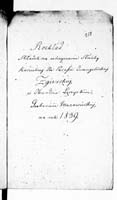 Rozkład
Składek na utrzymanie Szkoły
Parafii Ewangelickiej
Zgierskiej
w Obwodzie Łęczyckim
Gubernii Mazowieckiej
na rok 1839